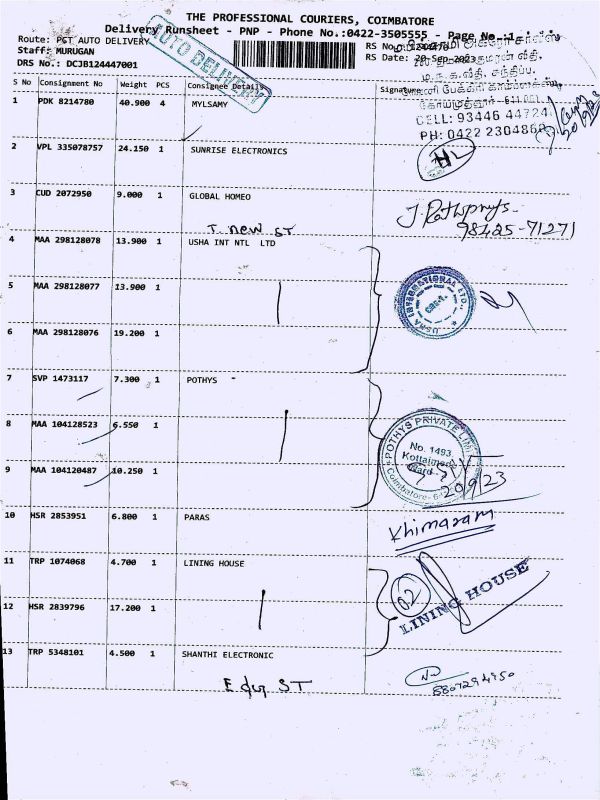 THE PROFESSIONAL COURIERS, COIMBATORE
Delivery Runsheet - PNP - Phone No.:0422-3505555 - Page No.:1
Route: PST AUTO DELIVERY
Staff: MURUGAN
DRS No.: DCJB124447001
AUTO DELIVERY
RS No.
RS Date: 20-Sep-2023
CELL: 93446 44724
PH: 0422 2304868
S No Consignment No Weight PCS Consignee Details Signature
1 PDK 8214780 40.900 4 MYLSAMY
2 VPL 335078757 24.150 1 SUNRISE ELECTRONICS
3 CUD 2072950 9.000 1 GLOBAL HOMEO
T. new ST
98425-71271
4 MAA 298128078 13.900 1 USHA INT NTL LTD
5 MAA 298128077 13.900 1
USHA INTERNATIONAL LTD.
6 MAA 298128076 19.200 1
7 SVP 1473117 7.300 1 POTHYS
8 MAA 104128523 6.550 1
POTHYS PRIVATE LIMITED
No. 1493
Kottaimedu
Ward
Coimbatore-
20/9/23
9 MAA 104120487 10.250 1
10 HSR 2853951 6.800 1 PARAS
Khimaram
11 TRP 1074068 4.700 1 LINING HOUSE
LINING HOUSE
12 HSR 2839796 17.200 1
13 TRP 5348101 4.500 1 SHANTHI ELECTRONIC